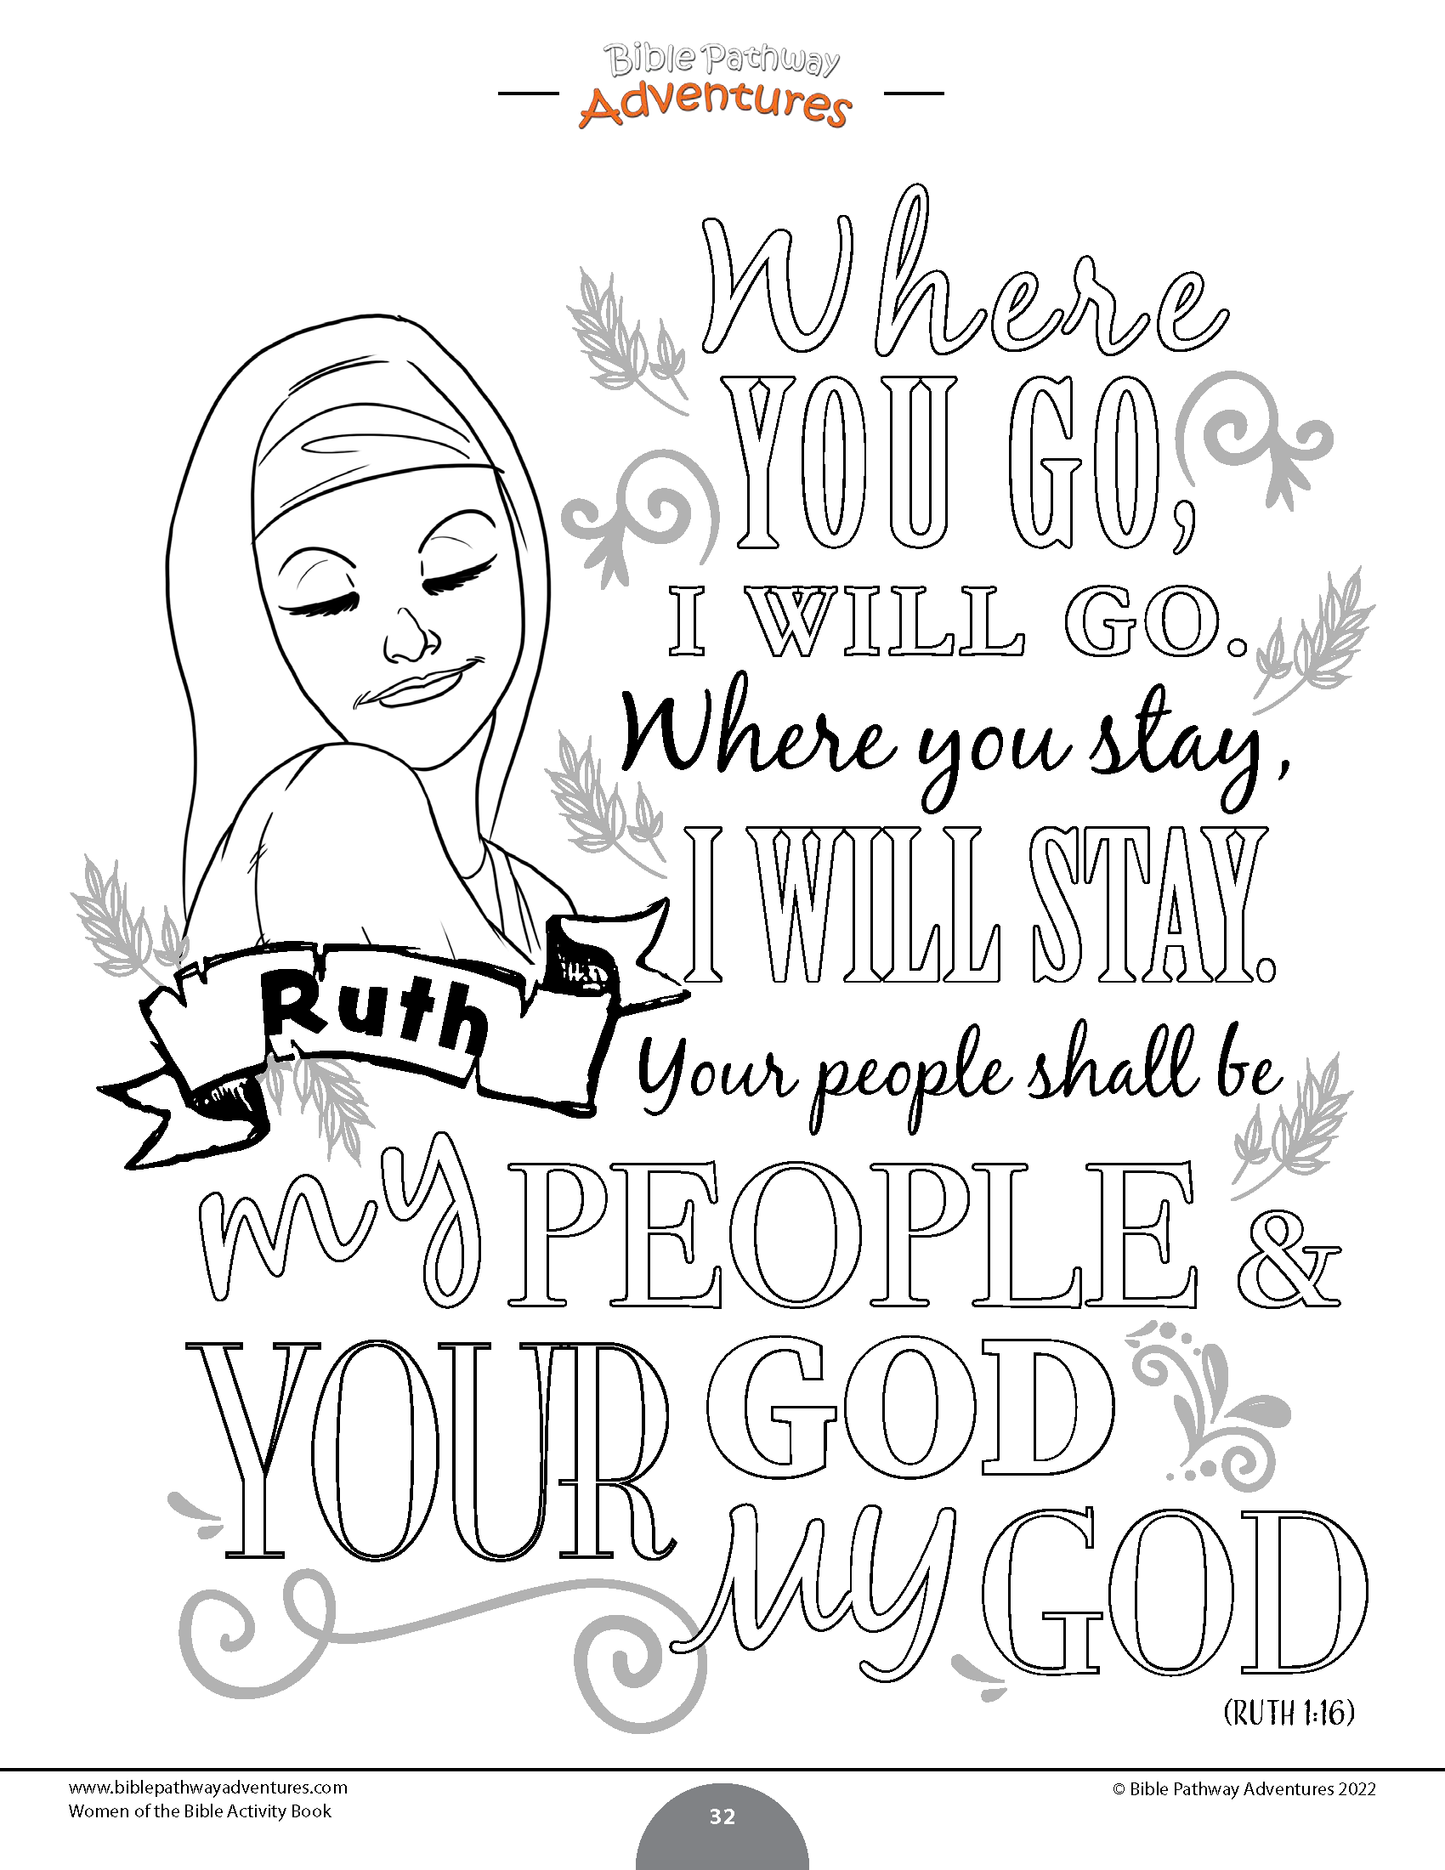 Bible Pathway
Adventures
Where
YOU GO,
I WILL GO.
Where you stay,
I WILL STAY.
Ruth
Your people shall be
my PEOPLE &
YOUR GOD
My GOD
(RUTH 1:16)
www.biblepathwayadventures.com
Women of the Bible Activity Book
32
© Bible Pathway Adventures 2022